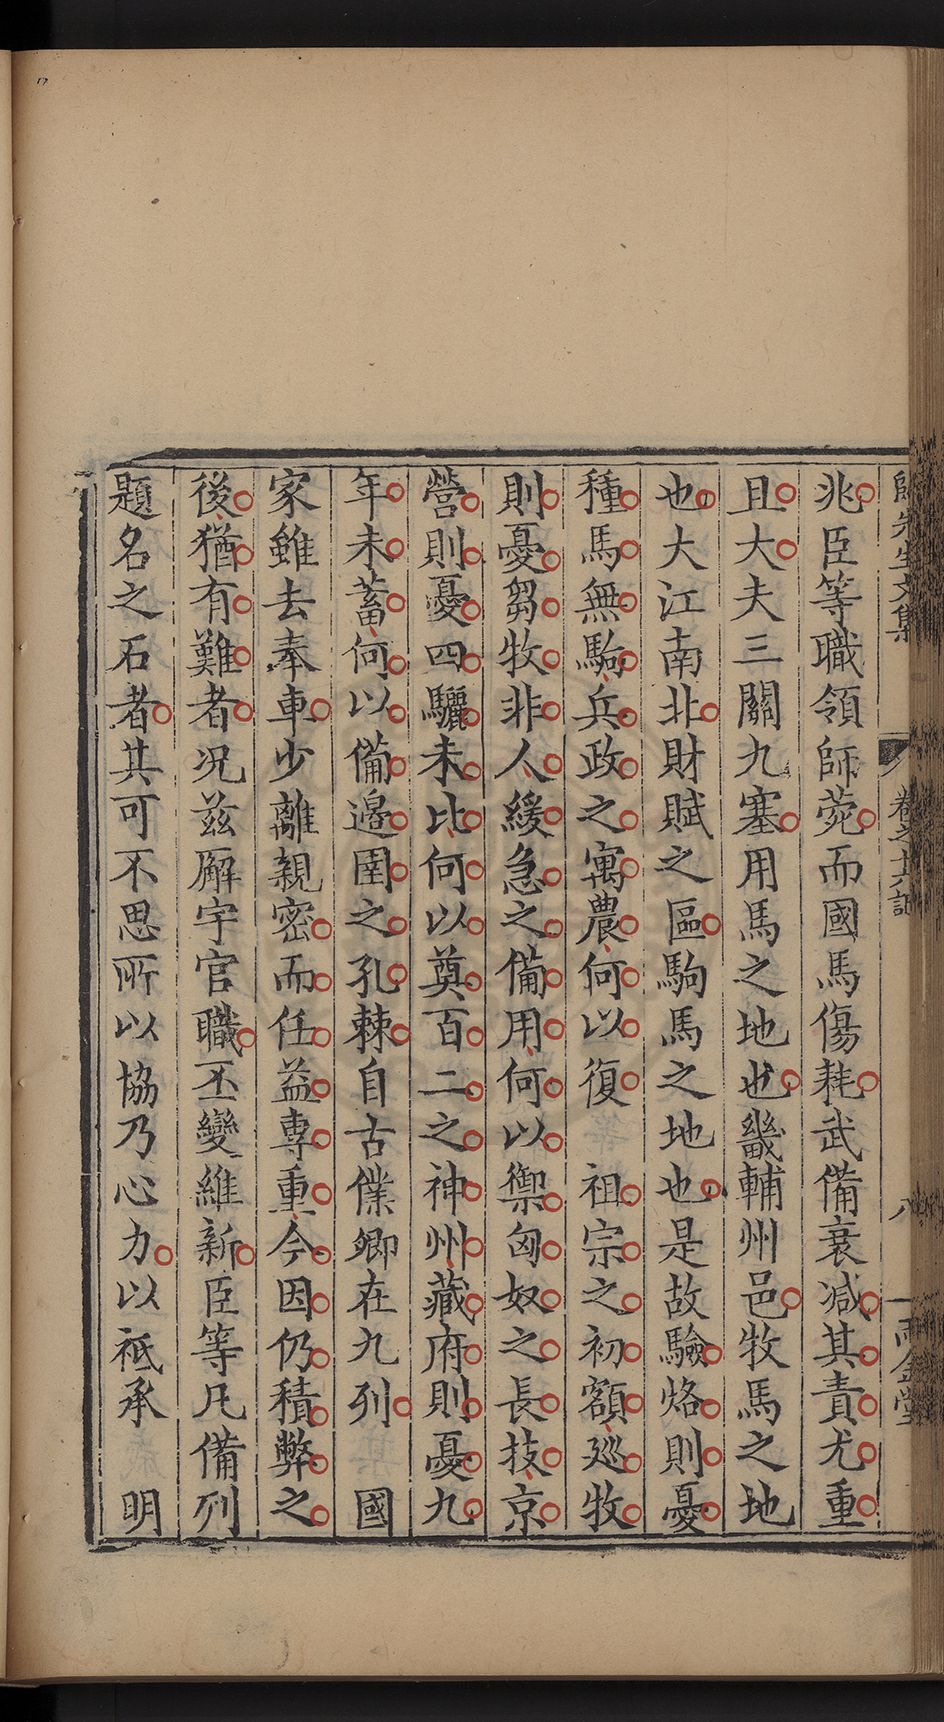 兆臣等職領師菀而國馬傷耗武備衰減其責尤重
且大夫三關九塞用馬之地也畿輔州邑牧馬之地
也大江南北財賦之區駒馬之地也是故驗烙則憂
種馬無駒兵政之寓農何以復祖宗之初額廵牧
則憂芻牧非人緩急之備用何以禦匈奴之長技京
營則憂四驪未比何以奠百二之神州藏府則憂九
年未蓄何以備邉圉之孔棘自古僕卿在九列國
家雖去奉車少離親密而任益專重今因仍積弊之
後猶有難者况兹廨宇官職丕變維新臣等凡備列
題名之石者其可不思所以協乃心力以祗承明
先生文集
卷之十六記
八
雨金堂